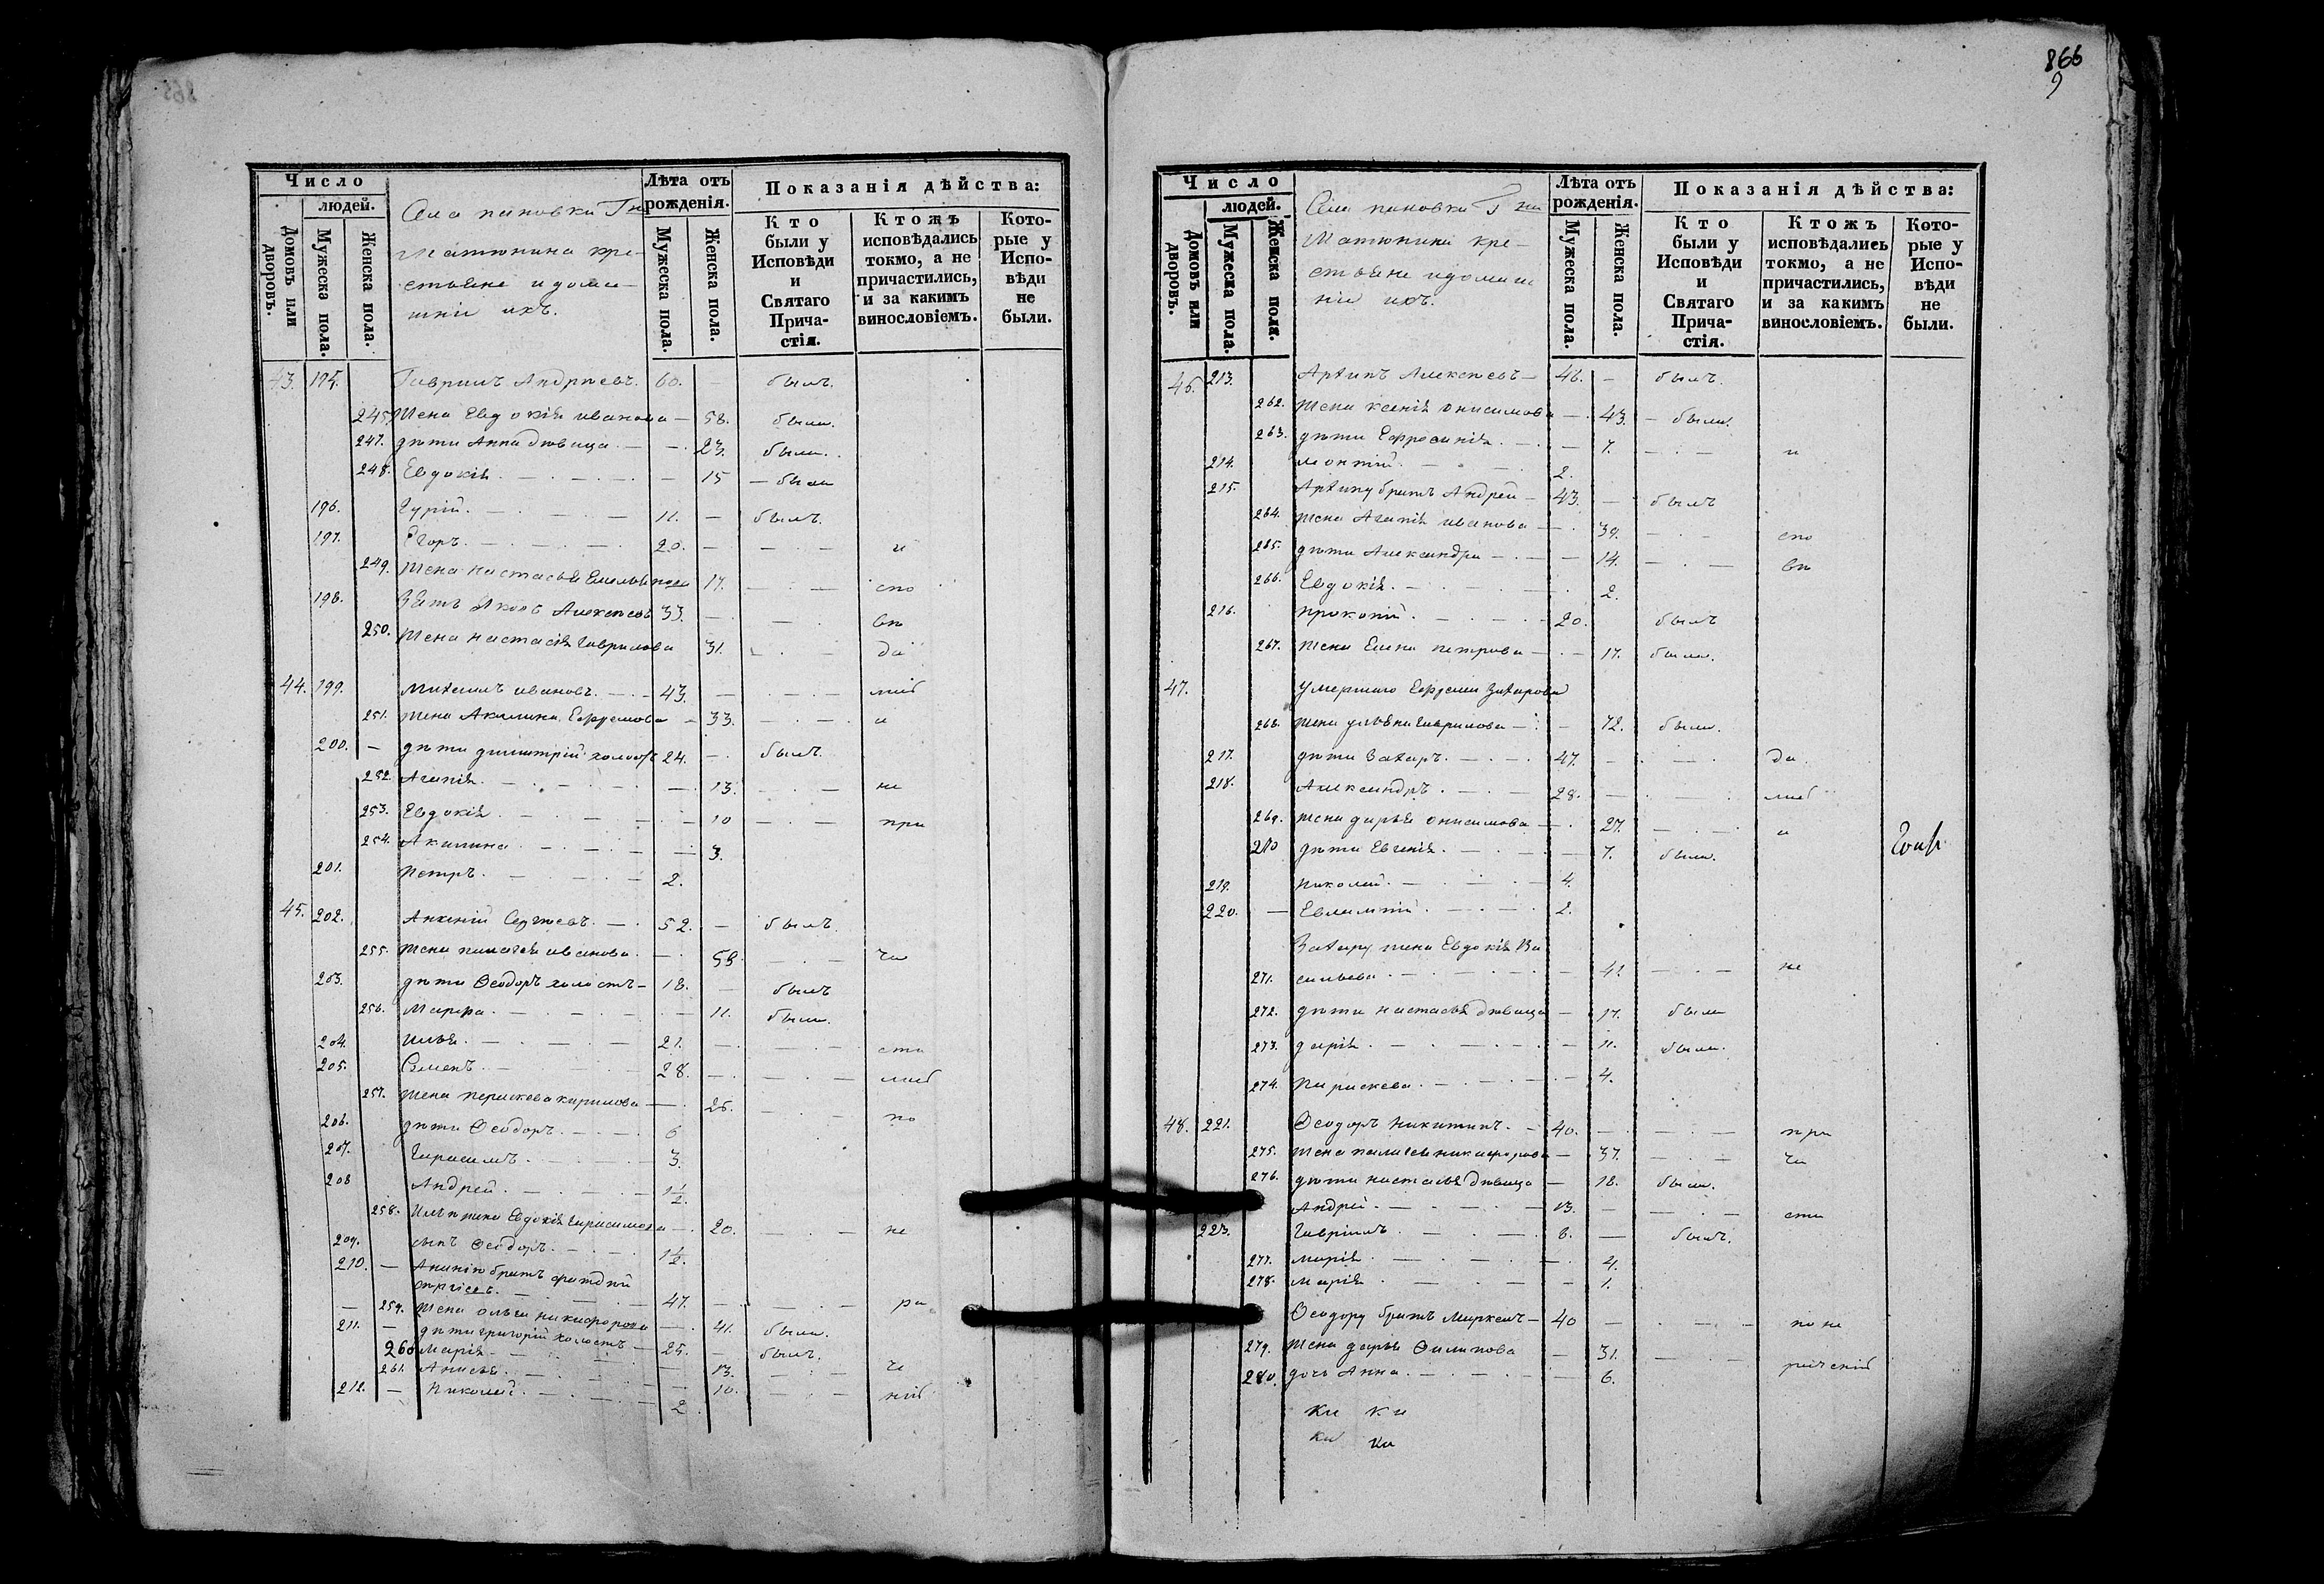 866
9
Число
людей.
Домовъ или дворовъ.
Мужеска пола.
Женска пола.
Села пановки Г на
Матюнина кре-
стьяне и дома-
шніи ихъ.
Лѣта отъ рожденія.
Мужеска пола.
Женска пола.
Показанія дѣйства:
Кто были у Исповѣди и Святаго Прича- стія.
Ктожъ исповѣдались токмо, а не причастились, и за какимъ винословіемъ.
Кото- рые у Испо- вѣди не были.
43. 195. Гаврилъ Андреевъ. 60. — былъ.
245. Жена Евдокія иванова — 58. была.
247. дѣти Анна дѣвица — 23. была.
248. Евдокія — 15 — была
196. Гурій. — 11. — былъ.
197. Егоръ. — 20. — и
249. Жена настасья Емельянова 17. — спо
198. Зять Яковъ Алексеевъ 33. — вѣ
250. Жена настасія Гаврилова 31. — да
44. 199. Михаилъ ивановъ. — 43. — лись
251. жена Акилина Ефремова — 33. — а
200. — дѣти димитрій холостъ 24. — былъ.
252. Агапія. — 13. — не
253. Евдокія — 10 — при
254. Акилина — 3.
201. Петръ. — 2.
45. 202. Ананій Сергеевъ. — 52. — былъ.
255. жена пелагея иванова. — 58. — ча
203. дѣти Ѳеодоръ холостъ — 18. — былъ
256. Марфа. — 11. была.
204. илья. — 21. — сти
205. Семенъ. — 28. — лись
257. жена перасковья кирилова — 25. — по
206. дѣти Ѳеодоръ. — 6
207. Герасимъ. — 3.
208 Андрей. — 1½
258. Ильи жена Евдокія Герасимова — 20. — не
209. сынъ Ѳеодоръ. — 1½.
210. — Ананію братъ
47. — ра
259. Жена ольга никифорова — 41. была.
211. — дѣти григорій холостъ — 25. — былъ.
260 Марія — 13. — че
261. Анисья. — 10. — ній
212. — Николай. — 2
Число
людей.
Домовъ или дворовъ.
Мужеска пола.
Женска пола.
Села пановки Г на
Матюнина кре-
стьяне и домаш
ніи ихъ.
Лѣта отъ рожденія.
Мужеска пола.
Женска пола.
Показанія дѣйства:
Кто были у Исповѣди и Святаго Прича- стія.
Ктожъ исповѣдались токмо, а не причастились, и за какимъ винословіемъ.
Кото- рые у Испо- вѣди не были.
46. 213. Архипъ Алексеевъ — 46. — былъ.
262. жена ксенія онисимова — 43. — была.
263. дѣти Ефросинія. — 7. — и
214. — 2.
215. Архипу братъ Андрей — 43. — былъ
264. жена Агапія иванова — 39. — спо
265. дѣти Александра — 14. — вѣ
266. Евдокія. — 2.
216. прокопій. — 20. былъ
267. жена Елена петрова — 17. была.
47. умершаго Ефрема Захарова
268. жена ульяна Гаврилова — 72. была.
217. дѣти Захаръ. — 47. — да.
218. Александръ. — 28. — лись
269. жена дарья онисимова — 27. — а
270 дѣти Евгенія. — 7. была.
219. николай. — 4.
220. — Евлампій. — 2.
Захару жена Евдокія Ва
271. сильева. — 41 — не
272. дѣти настасья дѣвица — 17. была
273. дарія — 11. была.
274. параскева. — 4.
48. 221. Ѳеодоръ никитинъ. — 40. — при
275. жена пелагея никифорова — 37. — ча
276. дѣти настасья дѣвица — 18. была.
Андрей. — 13. — сти
223. Гавріилъ. — 8. — былъ.
277. марія — 4.
278. марія. — 1.
Ѳеодору братъ Маркелъ — 40 — по не
279. жена дарья Филипова — 31. — раченію
280. дочь Анна. — 6.
ки ки
ки ки